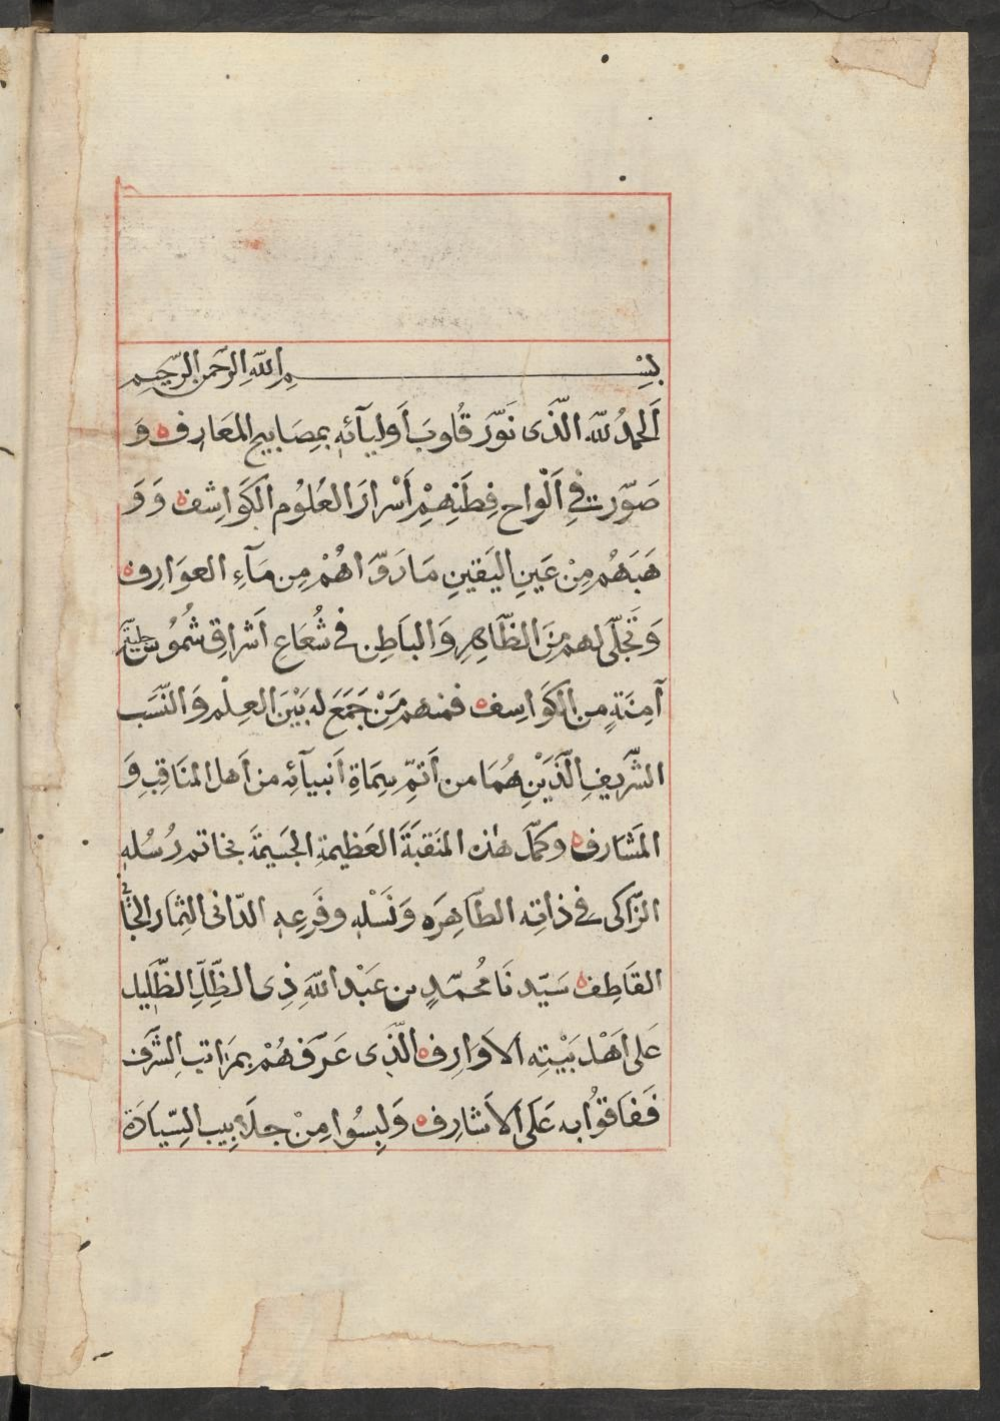 بِسْمِ اللّٰهِ الرَّحْمٰنِ الرَّحِيمِ
اَلحَمدُ لِلّٰهِ الَّذى نَوَّرَ قُلوبَ أَوليَآئِهِ بِمِصَابيحِ المَعَارِف وَ
صَوَّرَت فِى اَلْواحِ فِطَنِهِمْ أَسْرارَ العُلُومِ الكَوَاشِف وَ وَ
هَبَهُم مِنْ عَينِ اليَقينِ مَا رَوَّاهُمْ مِن مَآءِ العَوَارِف
وَ تَجَلّى لهم مِنَ الظَّاهِرِ وَ البَاطِنِ فى شُعَاعِ اَشراقِ شُمُوسٍ جليّة
آمِنَةٍ من الكَوَاسِف فمنهم مَنْ جَمَعَ له بَيْنَ العِلْمِ وَ النّسَب
الشَّرِيفِ الَّذَيْنِ هُمَا من أَتمِّ سِمَاةِ أَنبيآئِه من أهل المنَاقِبِ وَ
المَشَارف وكمّل هٰذه المَنقبَةَ العَظيمةِ الجَسيمةَ بخاتم رُسُلهِ
الزّاكى فى ذاتِه الطّاهِرَه وَ نَسْلهِ وفَرعِهِ الدّانى الثِمَار الجَانى
القَاطِف سَيّدنَا مُحمّدٍ بن عَبْد اللّٰهِ ذِى الظِّلِّ الظَّلِيلِ
عَلى اَهْل بَيْتِه الاَوَارِف الَّذِى عَرَّفهُمْ بِمَراتبِ الشَّرَف
فَفَاقوُا به عَلَى الأَشارِف وَ لَبِسُوا مِنْ جلاَبِيب السِّيَادَة